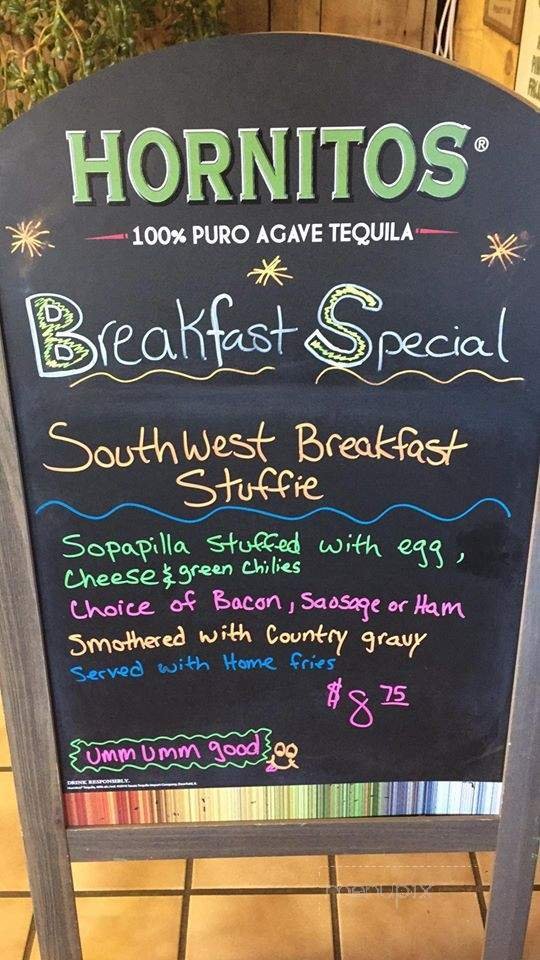 HORNITOS®
100% PURO AGAVE TEQUILA
Breakfast Special
SouthWest Breakfast
Stuffie
Sopapilla Stuffed with egg,
Cheese & green Chilies
Choice of Bacon, Saosage or Ham
Smothered with Country gravy
Served with Home fries
$8 75
Umm Umm good
DRINK RESPONSIBLY.
menupix